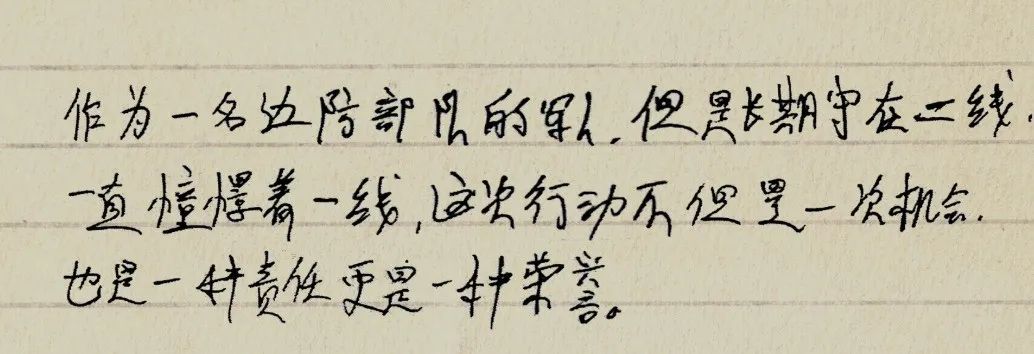 作为一名边防部队的军人,但是长期守在二线,
一直憧憬着一线,这次行动不但是一次机会,
也是一种责任更是一种荣誉。